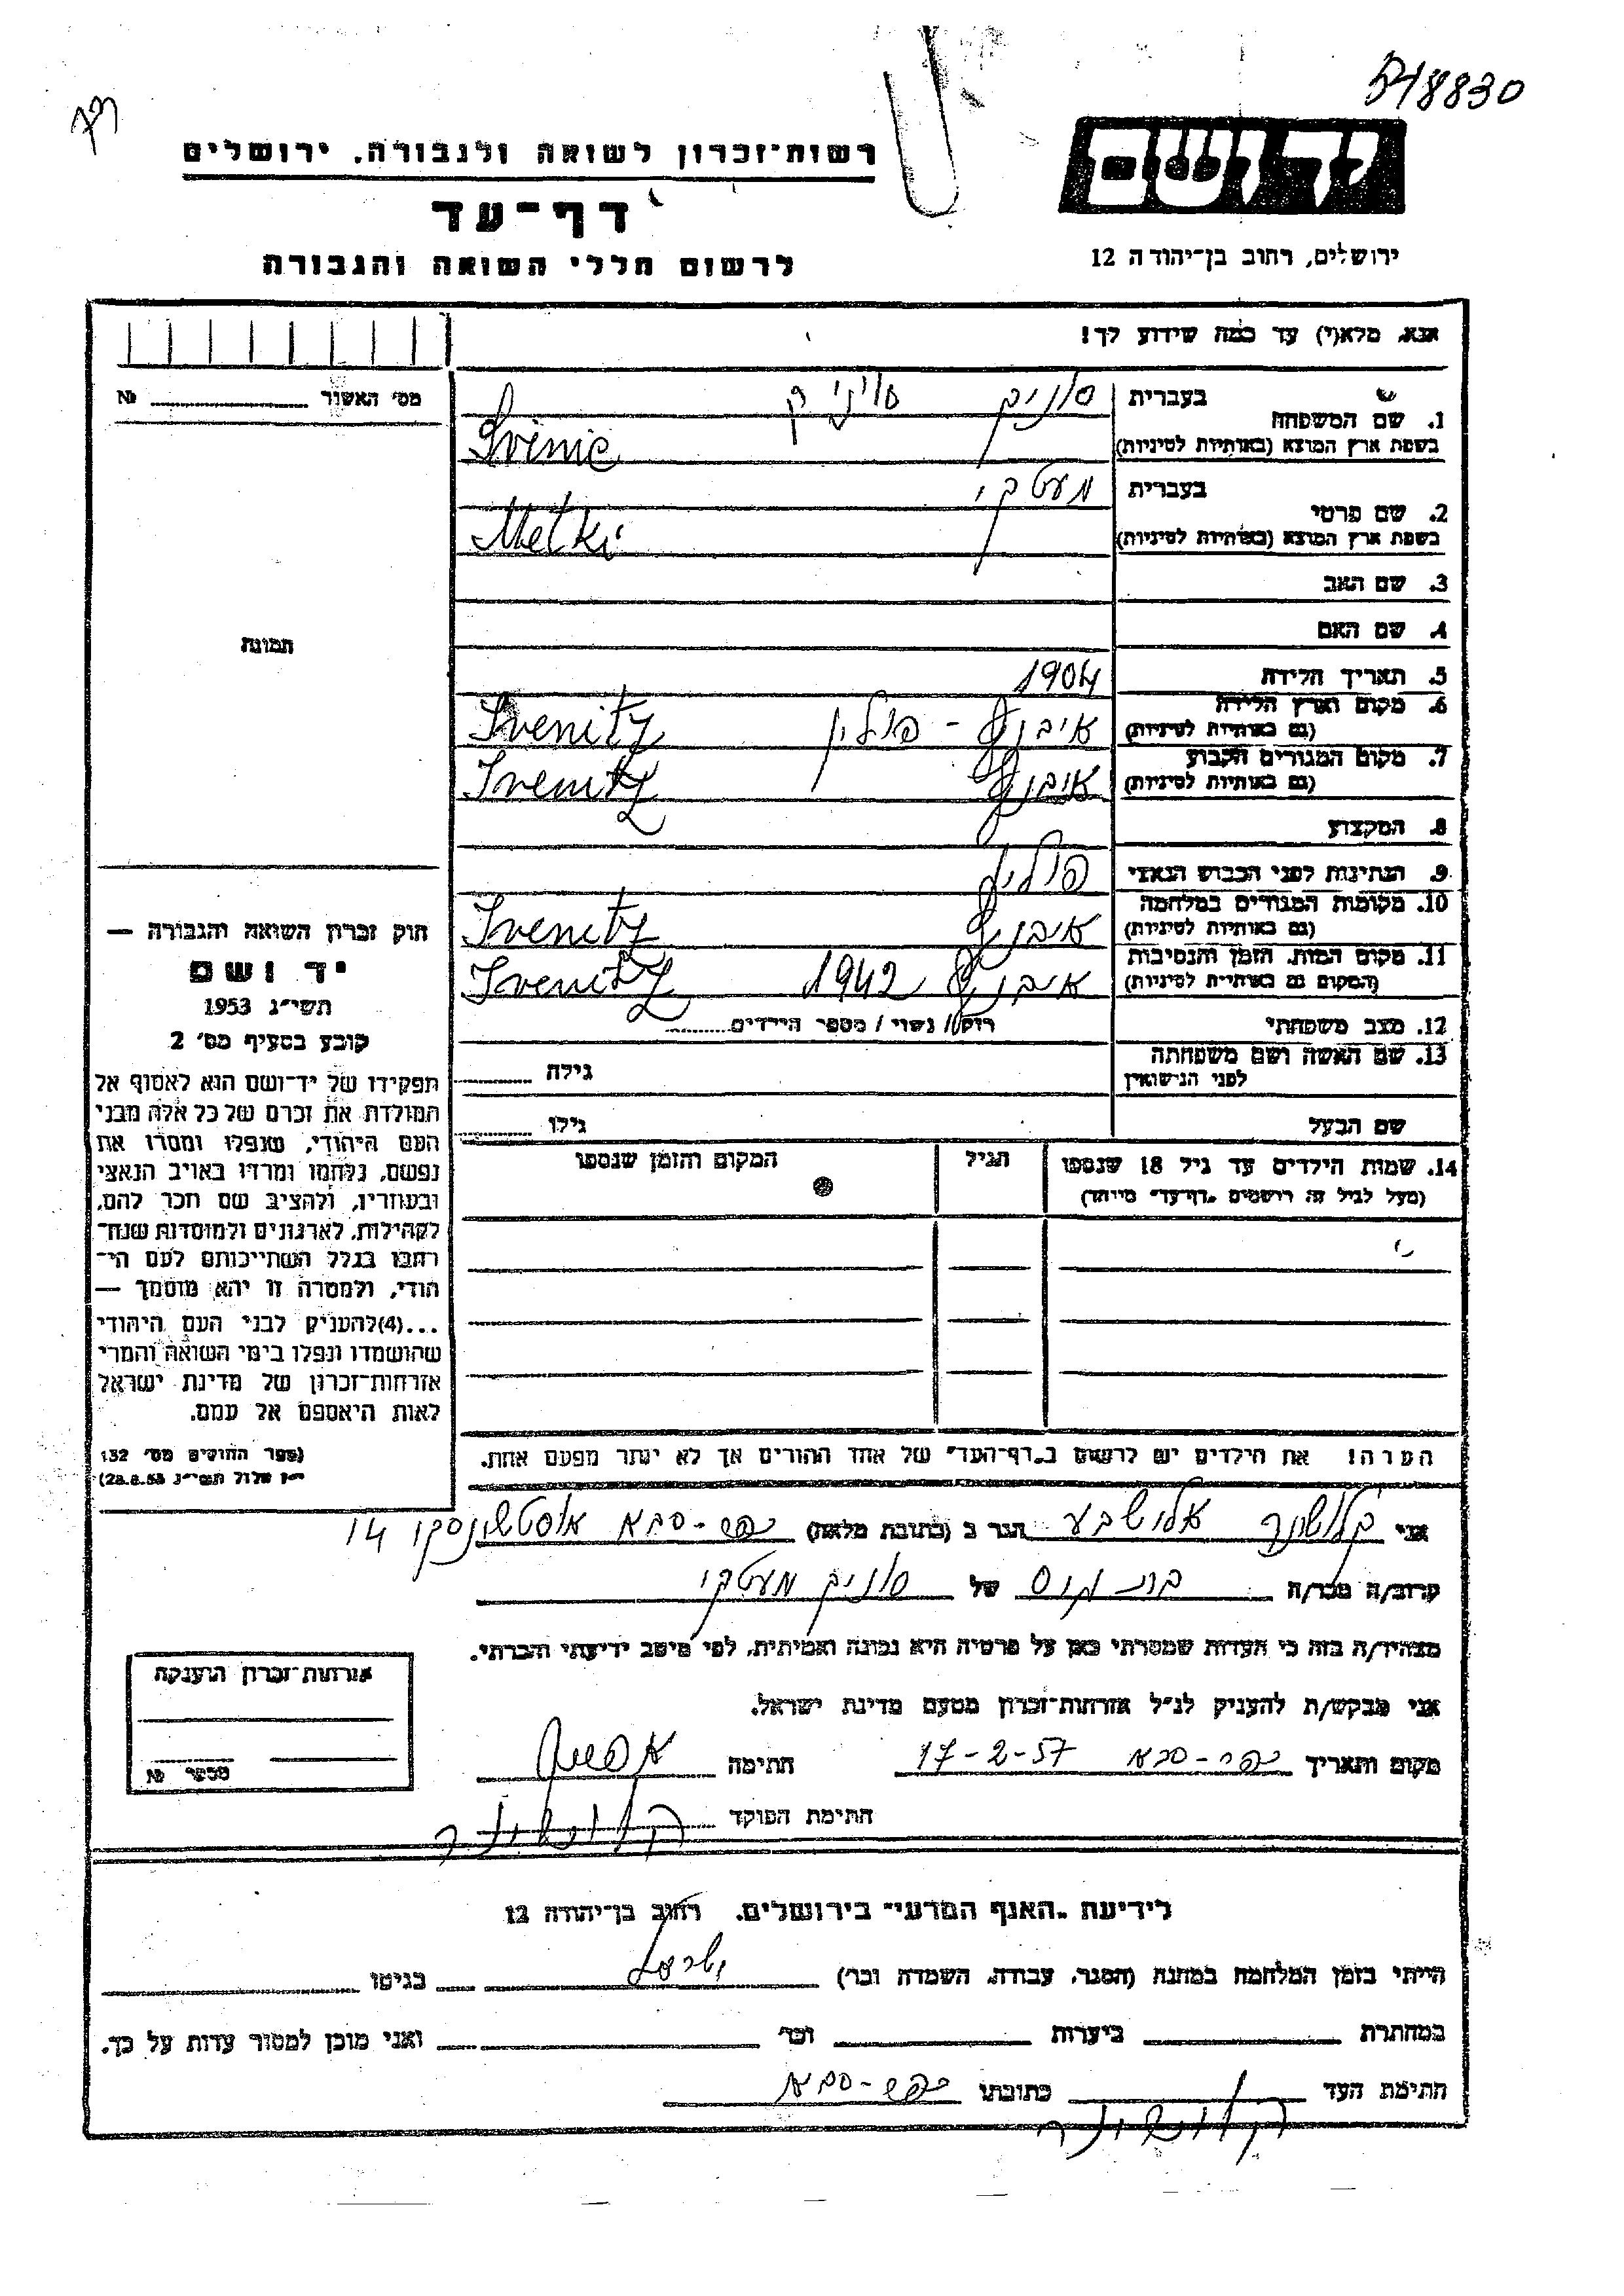 548830
רשות־זכרון לשואה ולגבורה, ירושלים
דף־עד
לרשום חללי השואה והגבורה
יד ושם
ירושלים, רחוב בן־יהודה 12
אנא, מלא(י) עד כמה שידוע לך!
מס' האשור № 
1. שם המשפחה בעברית סוניק סיניק
בשפת ארץ המוצא (באותיות לטיניות) Svinic
2. שם פרטי בעברית מעטקי
בשפת ארץ המוצא (באותיות לטיניות) Metki
3. שם האב
4. שם האם
תמונה
5. תאריך הלידה 1904
6. מקום וארץ הלידה (גם באותיות לטיניות) איבניץ - פולין Ivenitz
7. מקום המגורים הקבוע (גם באותיות לטיניות) איבניץ Ivenitz
8. המקצוע
9. הנתינות לפני הכבוש הנאצי פולין
10. מקומות המגורים במלחמה (גם באותיות לטיניות) איבניץ Ivenitz
11. מקום המות, הזמן והנסיבות (המקום גם באותיות לטיניות) איבניץ 1942 Ivenitz
12. מצב משפחתי רווק / נשוי / מספר הילדים
13. שם האשה ושם משפחתה לפני הנישואין גילה
שם הבעל גילו
14. שמות הילדים עד גיל 18 שנספו (מעל לגיל זה רושמים "דף־עד" מיוחד) הגיל המקום והזמן שנספו
הערה! את הילדים יש לרשום ב"דף־העד" של אחד ההורים אך לא יותר מפעם אחת.
חוק זכרון השואה והגבורה —
יד ושם
תשי"ג 1953
קובע בסעיף מס' 2
תפקידו של יד־ושם הוא לאסוף אל
המולדת את זכרם של כל אלה מבני
העם היהודי, שנפלו ומסרו את
נפשם, נלחמו ומרדו באויב הנאצי
ובעוזריו, ולהציב שם וזכר להם,
לקהילות, לארגונים ולמוסדות שנח־
רבו בגלל השתייכותם לעם הי־
הודי, ולמטרה זו יהא מוסמך —
...(4)להעניק לבני העם היהודי
שהושמדו ונפלו בימי השואה והמרי
אזרחות־זכרון של מדינת ישראל
לאות היאספם אל עמם.
(ספר החוקים מס' 132
י"ז אלול תשי"ג 28.8.53)
אני קלושנר אלישבע הגר ב (כתובת מלאה) כפר-סבא אוסטשינסקי 14
קרוב/ה מכר/ה בת דודה של סוניק מעטקי
מצהיר/ה בזה כי העדות שמסרתי כאן על פרטיה היא נכונה ואמיתית, לפי מיטב ידיעתי והכרתי.
אני מבקש/ת להעניק לנ"ל אזרחות־זכרון מטעם מדינת ישראל.
מקום ותאריך כפר-סבא 17-2-57 חתימה
חתימת הפוקד קלושנר
אזרחות־זכרון הוענקה
מספר №
לידיעת "האגף המדעי" בירושלים, רחוב בן־יהודה 12
הייתי בזמן המלחמה במחנה (הסגר, עבודה, השמדה וכו') בגיטו
במחתרת ביערות וכו' ואני מוכן למסור עדות על כך.
חתימת העד קלושנר כתובתו כפר-סבא